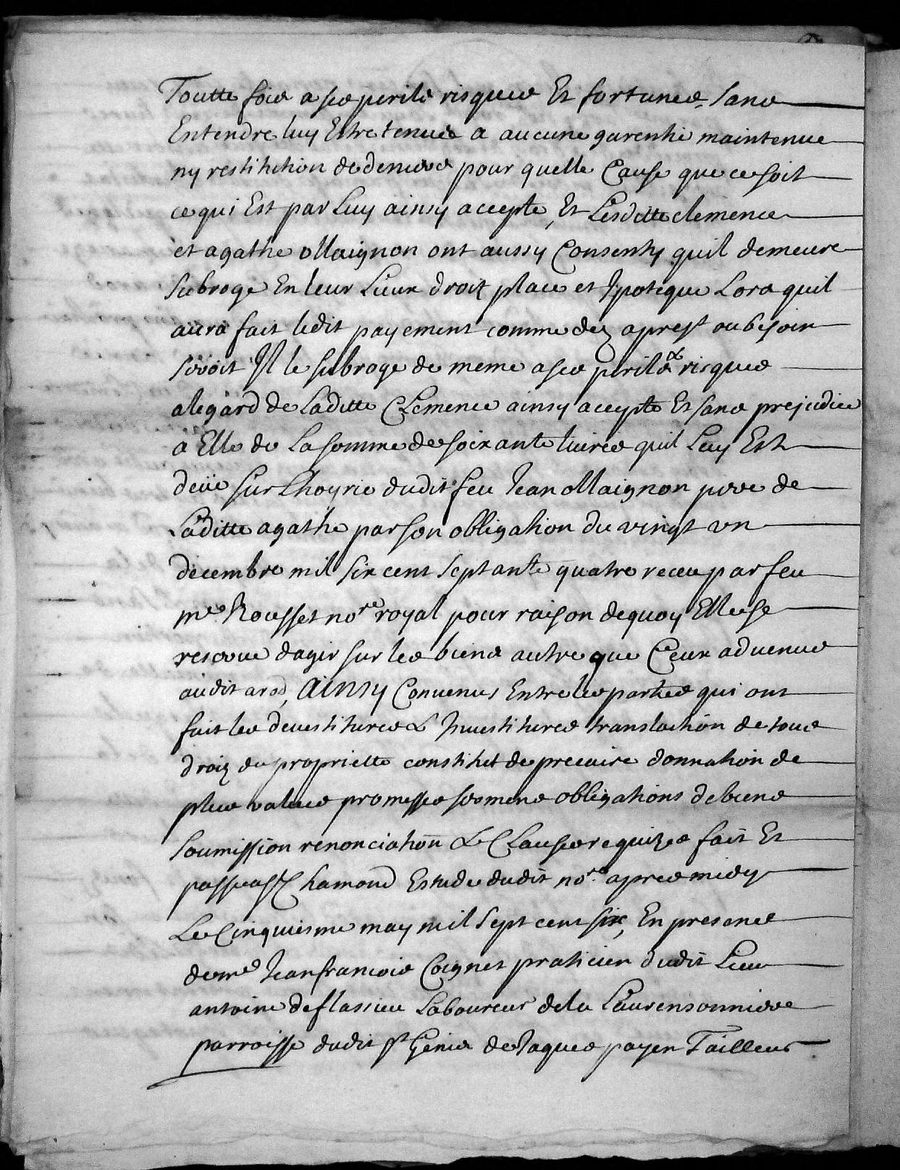 Toutte fois a ses perils risques Et fortunes, sans
Entendre luy Estre tenues a aucune garentie maintenue
ny restitution de deniers pour quelle Cause que ce soit
ce qui Est par Luy ainsy accepte, Et Lesditte clemence
et agathe Maignon ont aussy Consenty quil demeure
subroge En leur Lieux droit place et Ypotique Lors quil
aura fait ledit payement comme dez apresst ou besoin
seroit Il le subroge de meme a ses perils & risques
alegard de Laditte Clemence ainsy accepte Et sans prejudice
a Elle de La somme de soixante livres quil Luy Est
deüe sur Lhoyrie dudit feu Jean Maignon pere de
Laditte agathe par son obligation du vingt un
decembre mil six cent septante quatre receu par feu
me Rousset nore royal pour raison dequoy Elle se
reserve dagir sur les biens autre que Ceux advenus
audit , Ainsy Convenus Entre les parties qui ont
fait les devestitures & Investitures translation de tous
droiz de propriette constitut de precaire donnation de
plus values promesses sermens obligations de biens
soumission renonciation & Clauses requizes fait Et
passe a St Chamond Estude dudit nore apres midy
Le Cinquiesme may mil sept cent six, En presance
de me Jean francois Coignet praticien dudit Lieu
antoine deflassieu Laboureur de la Laurensonniere
parroisse dudit st Genis de Jaques payen Tailleur